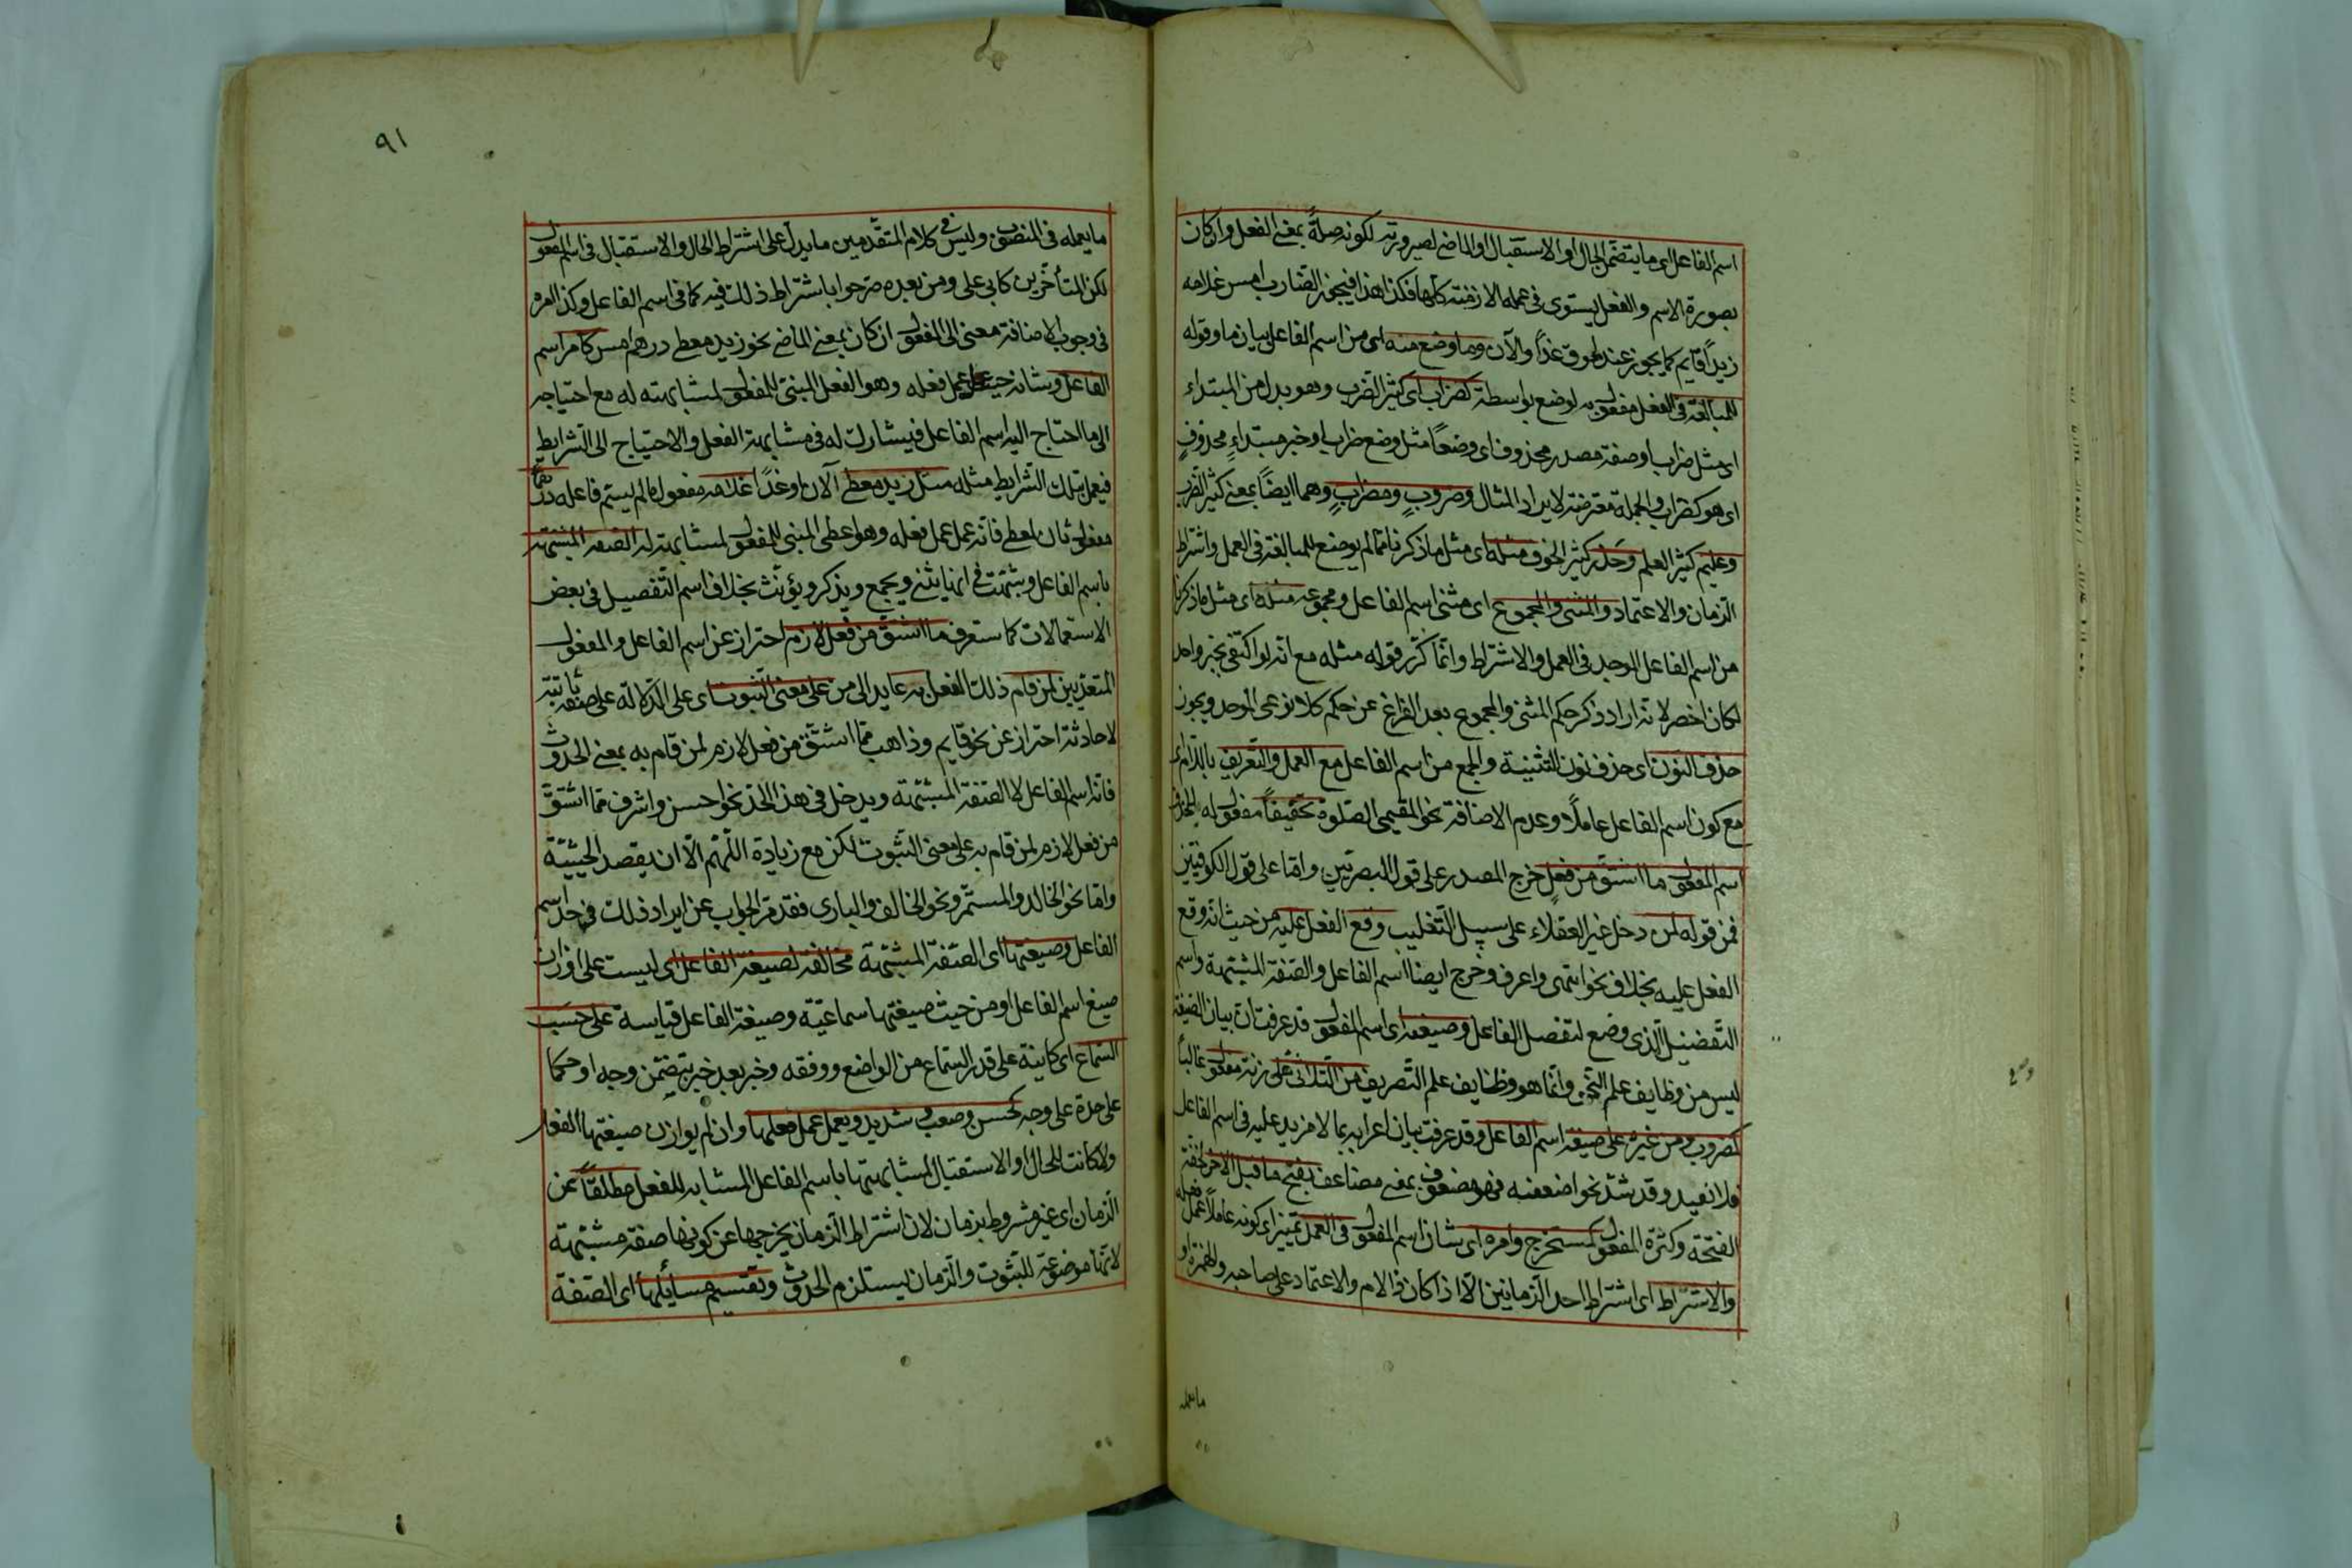 اسم الفاعل اى ما يتضمن الحال او الاستقبال او الماضى لصيرورته لكونه صلةً بمعنى الفعل وان كان
بصورة الاسم والفعل يستوى فى عمله الازمنة كلها فكذا هذا فيجوز الضارب امس غلامه
زيداً قايم كما يجوز عند لحوق غداً والآن وما وضع منه اى من اسم الفاعل بيان ما وقوله
للمبالغة فى الفعل مفعول به لوضع بواسطة كضراب اى كثير الضرب وهو بدل من المبتداء
اى مثل ضراب او صفة مصدر محذوف اى وضعاً مثل وضع ضراب او خبر مبتداءٍ محذوفٍ
اى هو كضراب والجملة معترضة لايراد المثال وضروبٍ ومضرابٍ وهما ايضاً بمعنى كثير الضرب
وعليم كثير العلم وحذر كثير الخوف مثله اى مثل ما ذكرنا مما لم يوضع للمبالغة فى العمل واشتراط
الزمان والاعتماد والمثنى والمجموع اى مثنى اسم الفاعل ومجموعه مثله اى مثل ما ذكرنا
من اسم الفاعل الموحد فى العمل والاشتراط وانما كرر قوله مثله مع انه لو اكتفى بخبر واحد
لكان اخصر لانه اراد ذكر حكم المثنى والمجموع بعد الفراغ عن حكم كلا نوعى الموحد ويجوز
حذف النون اى حذف نون التثنية والجمع من اسم الفاعل مع العمل والتعريف باللام اى
مع كون اسم الفاعل عاملاً وعدم الاضافة نحو المقيمى الصلوة تخفيفاً مفعول له للحذف
اسم المفعول ما اشتق من فعلٍ خرج المصدر على قول البصريين واما على قول الكوفيين
فمن قوله لمن دخل غير العقلاء على سبيل التغليب وقع الفعل عليه من حيث انه وقع
الفعل عليه بخلاف نحو انتهى واعرف وخرج ايضا اسم الفاعل والصفة المشبهة واسم
التفضيل الذى وضع لتفضيل الفاعل وصيغته اى اسم المفعول قد عرفت ان بيان الصيغة
ليس من وظايف علم النحو وانما هو وظايف علم التصريف من الثلاثى على زنة مفعول غالباً
كمضروب ومن غيره على صيغة اسم الفاعل وقد عرفت بيان اعرابه بما لا مزيد عليه فى اسم الفاعل
فلا نعيد وقد شذ نحو اضعفنه فهو مضعوف بمعنى مضاعف بفتح ما قبل الآخر لخفة
الفتحة وكثرة المفعول كمستخرج وامره اى شان اسم المفعول فى العمل تمييز اى كونه عاملاً عمل فعله
والاشتراط اى اشتراط احد الزمانين الا اذا كان ذا الام والاعتماد على صاحبه والهمزة او
ما يعمله
٩١
ما يعمله فى المنصوب وليس فى كلام المتقدمين ما يدل على اشتراط الحال والاستقبال فى اسم المفعول
لكن المتأخرين كابى على ومن بعده صرحوا باشتراط ذلك فيه كما فى اسم الفاعل وكذا امره
فى وجوب الاضافة معنى الى المفعول ان كان بمعنى الماضى نحو زيد معطى درهم امس كامر اسم
الفاعل وشانه حينئذ عمل فعله وهو الفعل المبنى للمفعول لمشابهته له مع احتياجه
الى ما احتاج اليه اسم الفاعل فيشارك له فى مشابهة الفعل والاحتياج الى الشرايط
فيعمل بتلك الشرايط مثله مثل زيد معطى الآن او غداً غلامه مفعول ما لم يسم فاعله درهماً
مفعول ثان لمعطى فانه عمل عمل فعله وهو اعطى المبنى للمفعول لمشابهته له الصفة المشبهة
باسم الفاعل وشبهت فى انها يثنى ويجمع ويذكر ويؤنث بخلاف اسم التفصيل فى بعض
الاستعمالات كما ستعرف ما اشتق من فعل لازم احتراز عن اسم الفاعل والمفعول
المتعديين لمن قام ذلك الفعل به عايد الى من على معنى الثبوت اى على الدلالة على صفة ثابتة
لا حادثة احتراز عن نحو قايم وذاهب مما اشتق من فعل لازم لمن قام به بمعنى الحدوث
فانه اسم الفاعل لا الصفة المشبهة ويدخل فى هذا الحد نحو احسن واشرف مما اشتق
من فعل لازم لمن قام به على معنى الثبوت لكن مع زيادة اللهم الا ان يقصد الحيثية
واما نحو الخالد والمستمر ونحو الخالق والبارى فقد مر الجواب عن ايراد ذلك فى حد اسم
الفاعل وصيغتها اى الصفة المشبهة مخالفة لصيغة الفاعل اى ليست على اوزان
صيغ اسم الفاعل او من حيث صيغتها سماعية وصيغة الفاعل قياسة على حسب
السماع اى كاينة على قدر السماع من الواضع ووفقه وخبر بعد خبر يتضمن وجه او حكما
على حدة على وجه كحسن وصعب وشديد ويعمل عمل فعلها وان لم يوازن صيغتها الفعل
ولا كانت للحال او الاستقبال لمشابهتها باسم الفاعل المشابه للفعل مطلقاً عن
الزمان اى غير مشروط بزمان لان اشتراط الزمان يخرجها عن كونها صفة مشبهة
لانها موضوعة للثبوت والزمان يستلزم الحدوث وتقسيم مسايلها اى الصفة